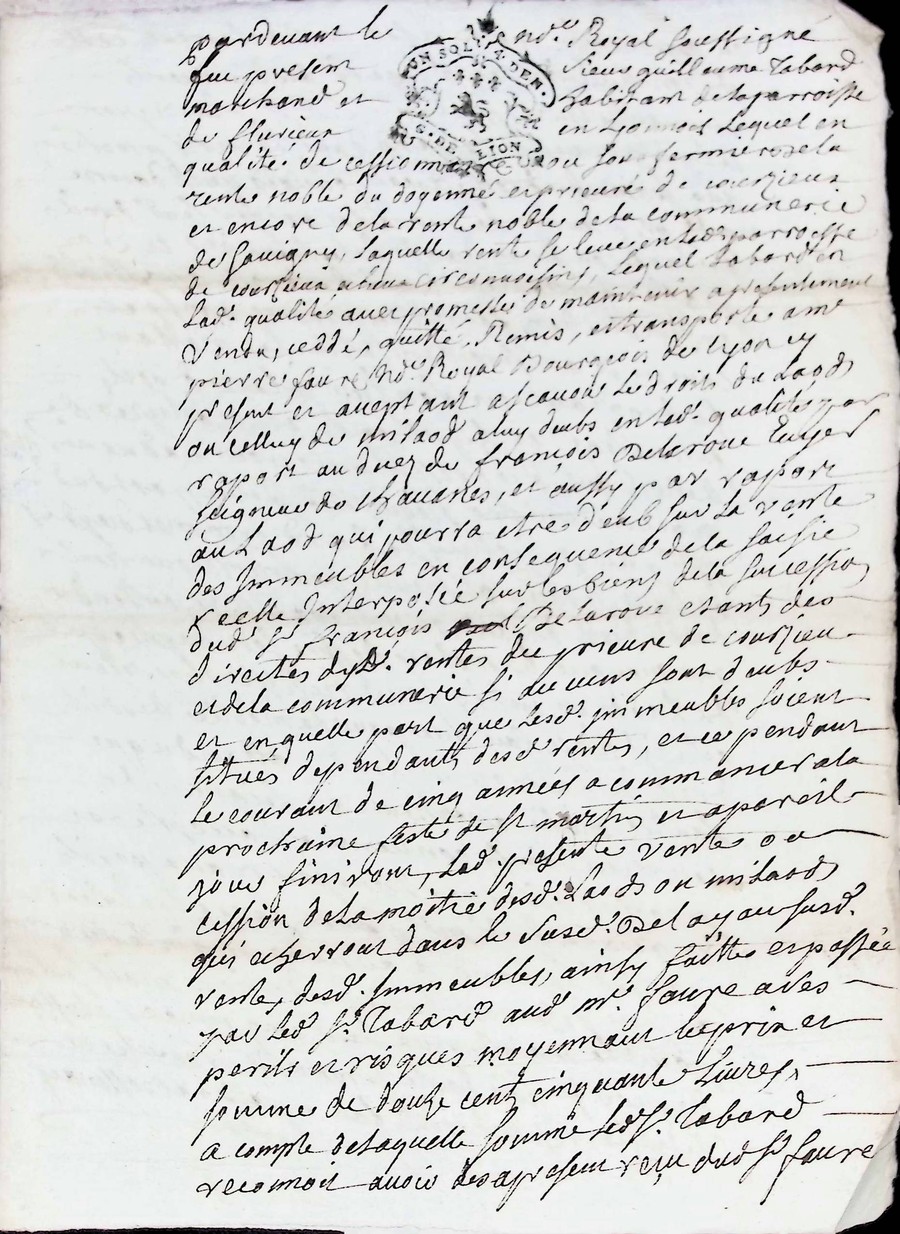 pardevant le nd.e Royal soussigné
fut present sieur guillaume Tabard
marchand et habitant de la parroisse
UN SOL 4 DEN.
G. DE LION
de flurieux en Lyonnois Lequel en
qualité de cessionnaire ou sous fermier de la
rente noble du doyenné et prieuré de courzieux
et encore de la rente noble de la communerie
de Savigny, Laquelle rente se leve en lad. parroisse
de courzieu et lieux circonvoisins, Lequel Tabard en
Lad. qualité avec promesse de maintenir a presentement
Vendu, ceddé, quitté, Remis, et transporté a m.e
pierre faure Nd.e Royal Bourgeois de Lyon cy
present et acceptant ascavoir Le droits du Laods
ou celluy de milaod a luy deubs en lad. qualité par
raport au deces de françois Delaroue Ecuyer
seigneur de chavanes, et aussy par raport
au Laod qui pourra etre deub sur La vente
des Immeubles en consequence de la saisie
reelle Interposée sur les biens de la succession
dud. S.r françois Delaroue etants des
directes desd. rentes du prieuré de courzieu
et de la communerie si aucuns sont deubs
et en quelle part que Lesd. jmmeubles soient
situés dependants desd. rentes, et ce pendant
Le courant de cinq années a commancer a la
prochaine feste de S.t martin et a pareil
jour finiront, Lad. presente vente ou
cession de la moitié desd. Laods ou milaods
qui echerront dans le susd. Delay au susd.
rentes, desd. Immeubles, ainsy faitte et passée
par Led. S.r Tabard aud. m.e faure a ses
perils et risques moyennant le prix et
somme de douze cent cinquante Livres,
a compte de laquelle somme led. S.r Tabard
reconnoit avoir des a present reçu dud. S.r faure